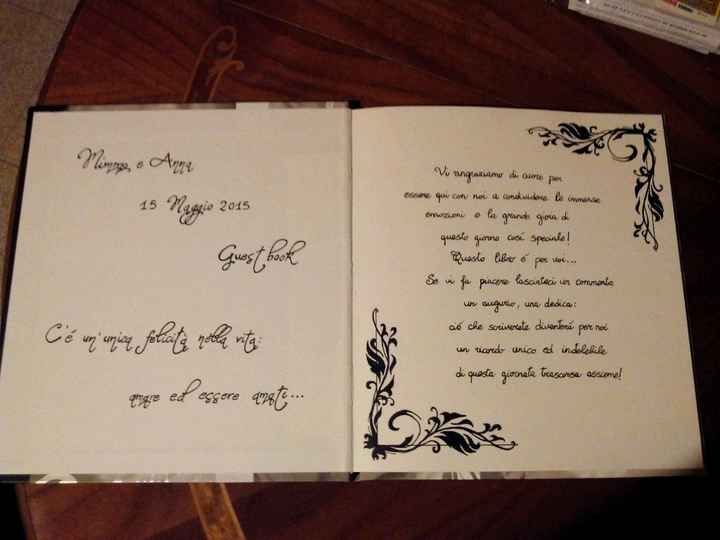 Mimmo e Anna
15 Maggio 2015
Guest book
C'é un'unica felicità nella vita:
amare ed essere amati...
Vi ringraziamo di cuore per
essere qui con noi a condividere le immense
emozioni e la grande gioia di
questo giorno così speciale!
Questo libro é per voi...
Se vi fa piacere lasciateci un commento
un augurio, una dedica:
ciò che scriverete diventerà per noi
un ricordo unico ed indelebile
di questa giornata trascorsa assieme!